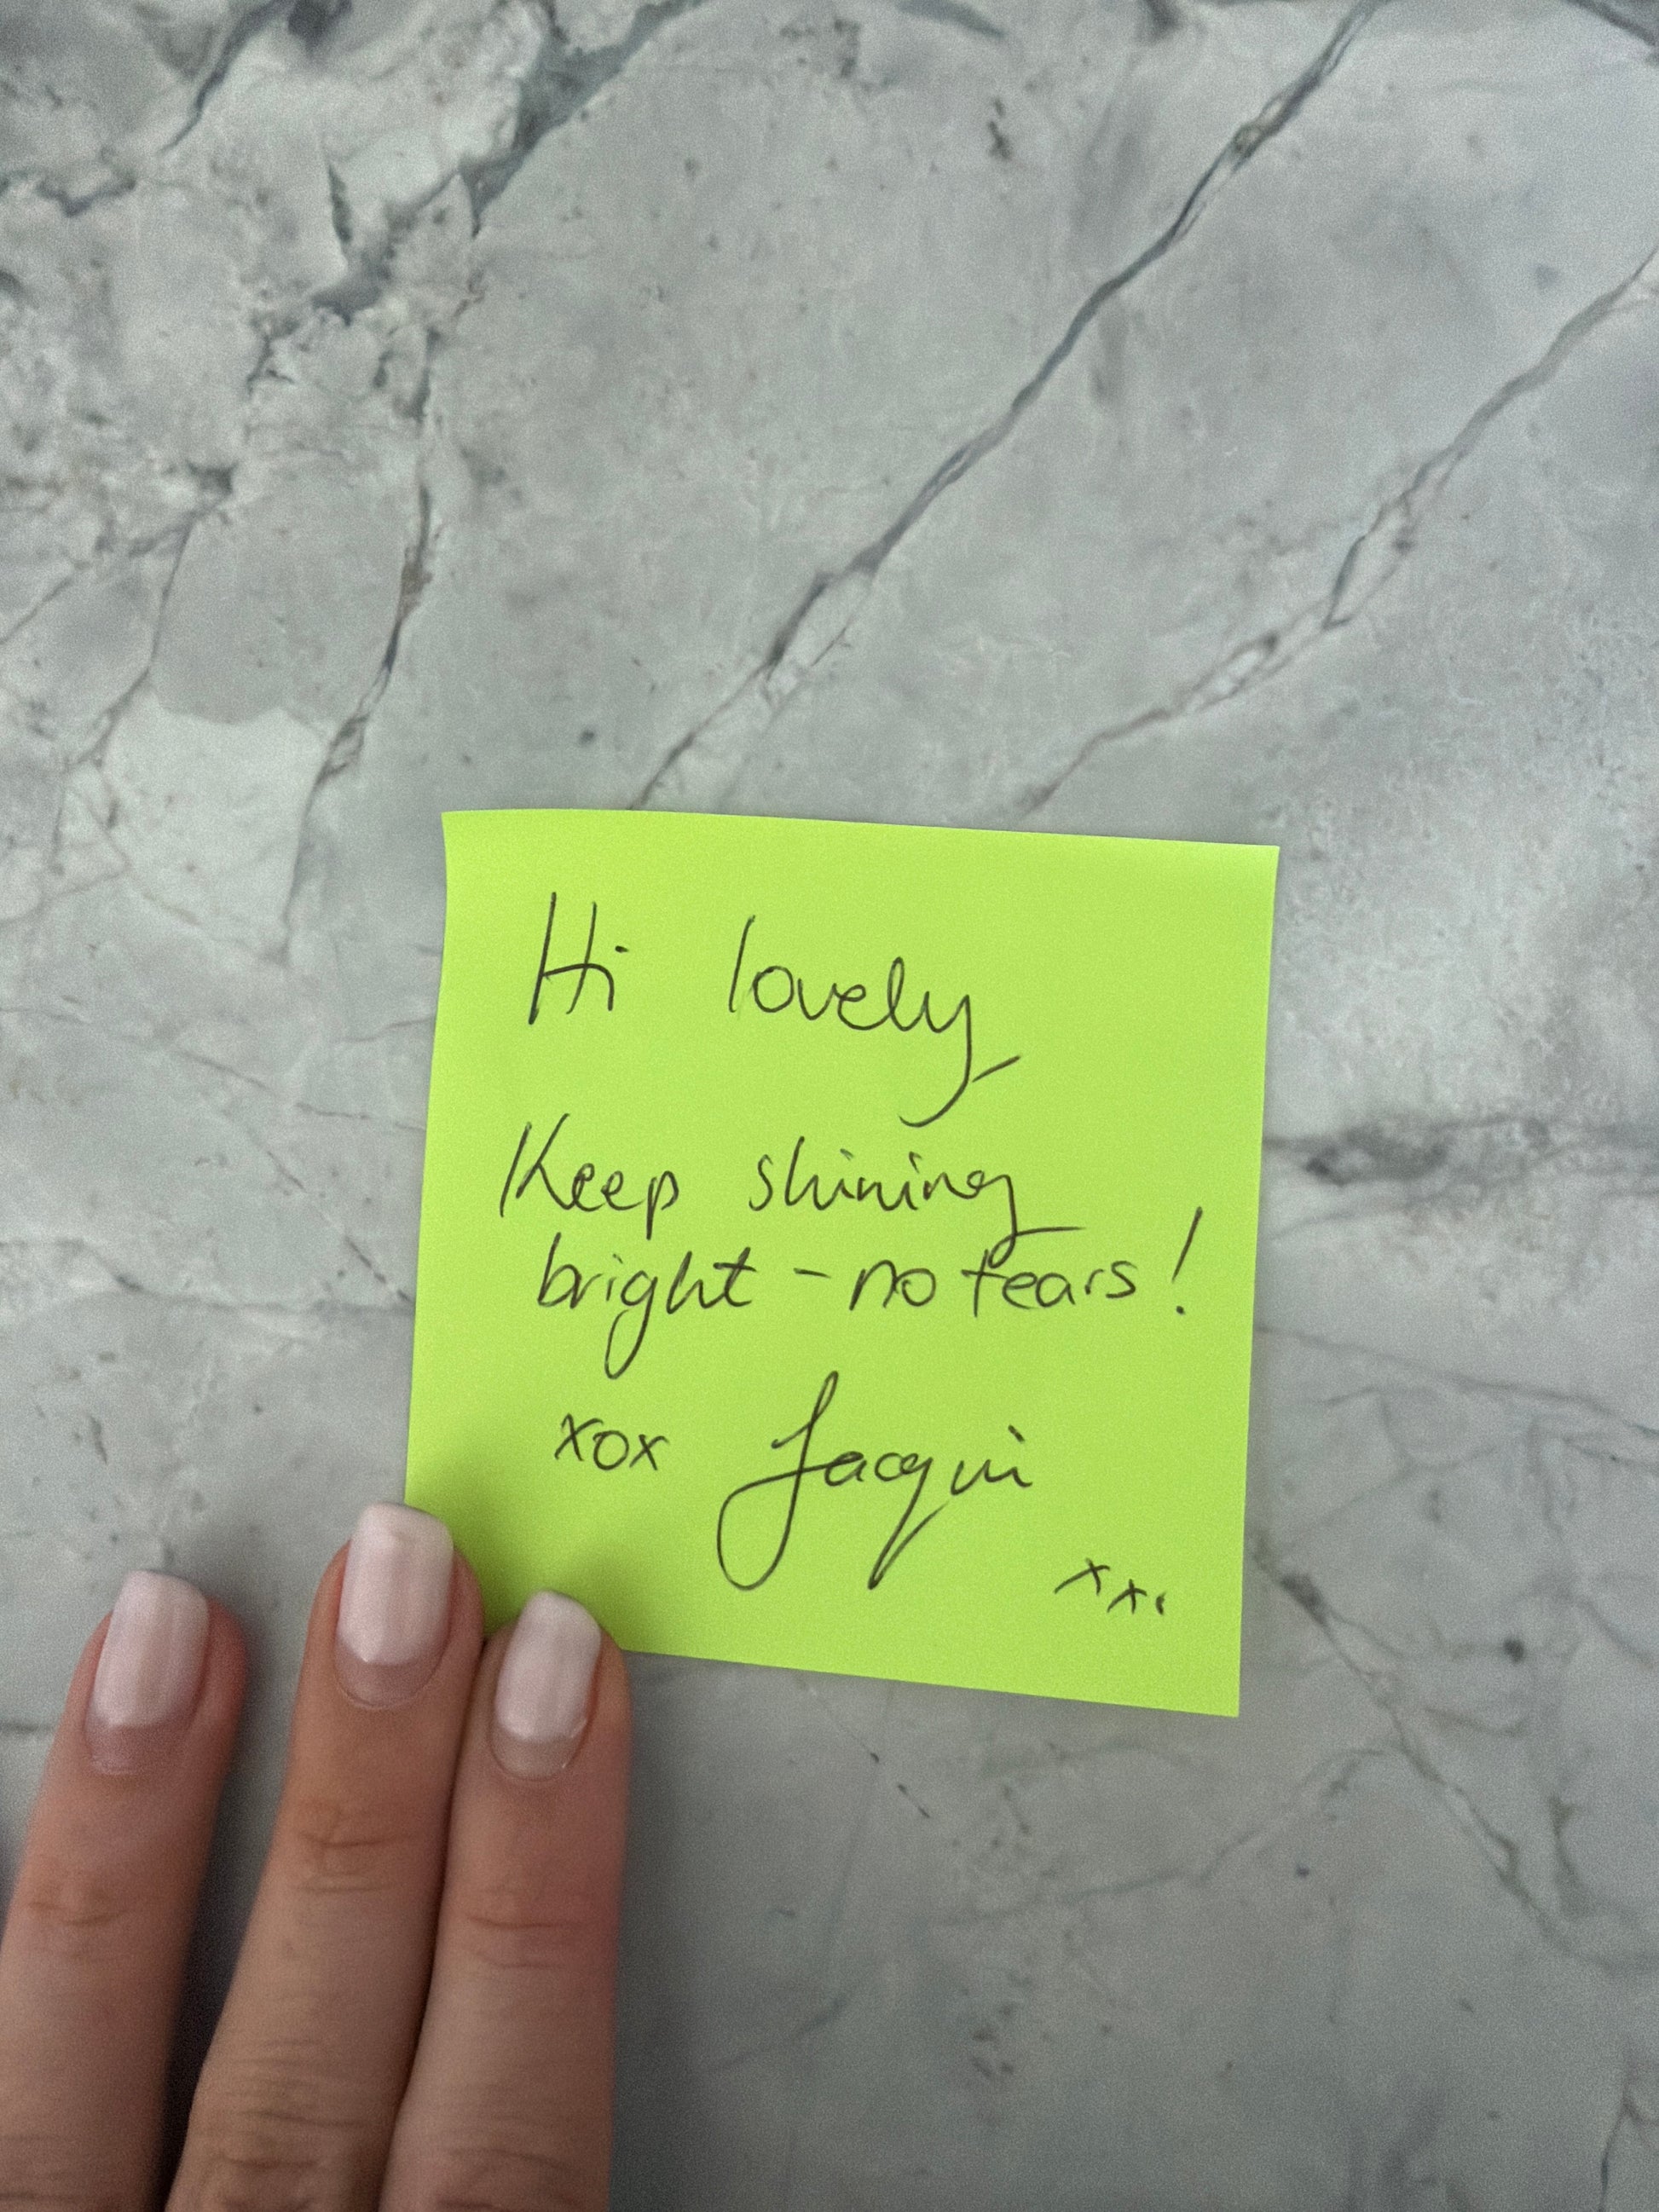 Hi lovely
Keep shining
bright - no tears!
xox Jacqui
xx.